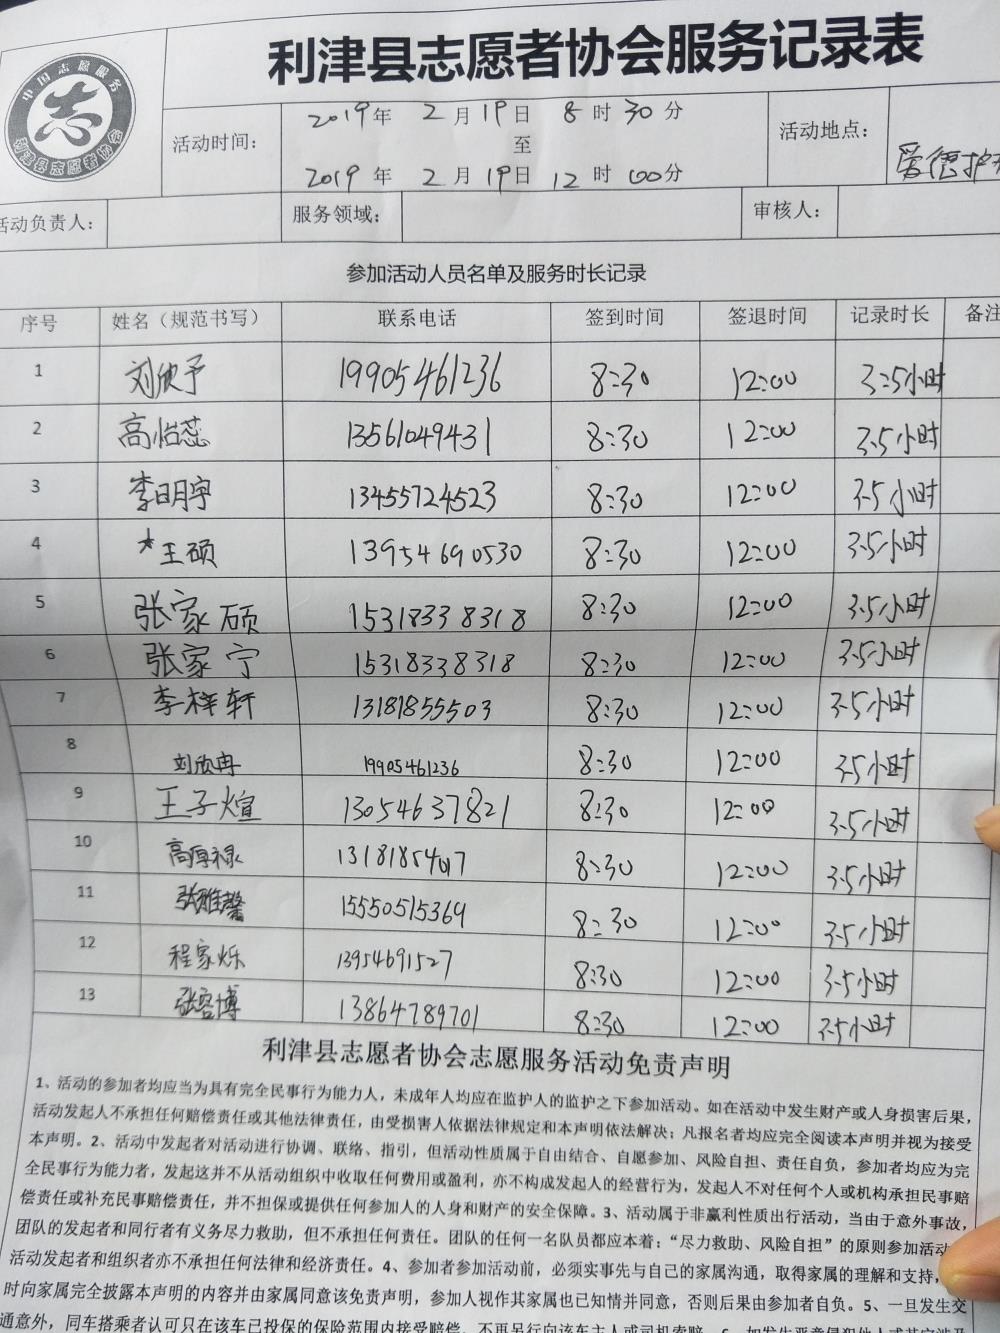 中国志愿服务
志
利津县志愿者协会
利津县志愿者协会服务记录表
活动时间： 2019年 2月19日 8时30分
至
2019年 2月19日 12时00分
活动地点： 爱德护
活动负责人： 服务领域： 审核人：
参加活动人员名单及服务时长记录
序号 姓名（规范书写） 联系电话 签到时间 签退时间 记录时长 备注
1 刘欣予 19905461236 8:30 12:00 3.5小时
2 高怡蕊 13561049431 8:30 12:00 3.5小时
3 李明宇 13455724523 8:30 12:00 3.5小时
4 *王硕 13954690530 8:30 12:00 3.5小时
5 张家硕 15318338318 8:30 12:00 3.5小时
6 张家宁 15318338318 8:30 12:00 3.5小时
7 李梓轩 13181855503 8:30 12:00 3.5小时
8 刘欣冉 19905461236 8:30 12:00 3.5小时
9 王子煊 13054637821 8:30 12:00 3.5小时
10 高厚禄 8:30 12:00 3.5小时
11 张雅馨 15550515369 8:30 12:00 3.5小时
12 程家烁 13954691527 8:30 12:00 3.5小时
13 张容博 13864789701 8:30 12:00 3.5小时
利津县志愿者协会志愿服务活动免责声明
1、活动的参加者均应当为具有完全民事行为能力人，未成年人均应在监护人的监护之下参加活动。如在活动中发生财产或人身损害后果，
活动发起人不承担任何赔偿责任或其他法律责任，由受损害人依据法律规定和本声明依法解决；凡报名者均应完全阅读本声明并视为接受
本声明。2、活动中发起者对活动进行协调、联络、指引，但活动性质属于自由结合、自愿参加、风险自担、责任自负，参加者均应为完
全民事行为能力者，发起这并不从活动组织中收取任何费用或盈利，亦不构成发起人的经营行为，发起人不对任何个人或机构承担民事赔
偿责任或补充民事赔偿责任，并不担保或提供任何参加人的人身和财产的安全保障。3、活动属于非赢利性质出行活动，当由于意外事故，
团队的发起者和同行者有义务尽力救助，但不承担任何责任。团队的任何一名队员都应本着：“尽力救助、风险自担”的原则参加活动
活动发起者和组织者亦不承担任何法律和经济责任。4、参加者参加活动前，必须实事先与自己的家属沟通，取得家属的理解和支持，
时向家属完全披露本声明的内容并由家属同意该免责声明，参加人视作其家属也已知情并同意，否则后果由参加者自负。5、一旦发生交
通意外，同车搭乘者认可只在该车已投保的保险范围内接受赔偿